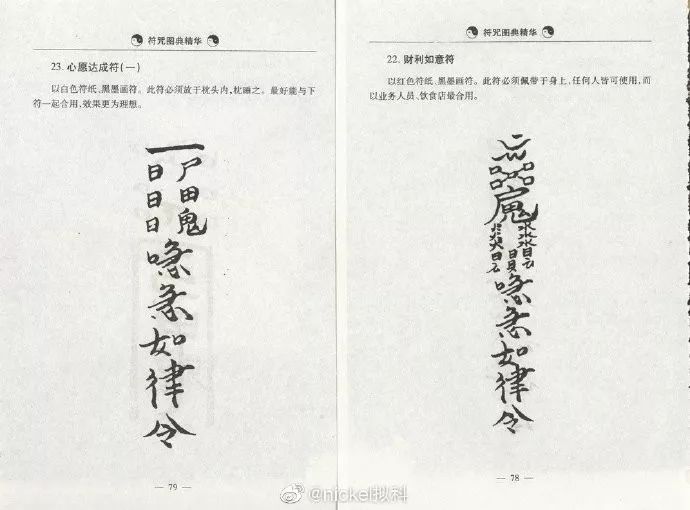 符咒图典精华
23. 心愿达成符(一)
以白色符纸、黑墨画符。此符必须放于枕头内，枕睡之。最好能与下
符一起合用，效果更为理想。
一
日日日
尸田鬼
急如律令
— 79 —
符咒图典精华
22. 财利如意符
以红色符纸、黑墨画符。此符必须佩带于身上，任何人皆可使用，而
以业务人员、饮食店最合用。
急如律令
— 78 —
@nickel拟科